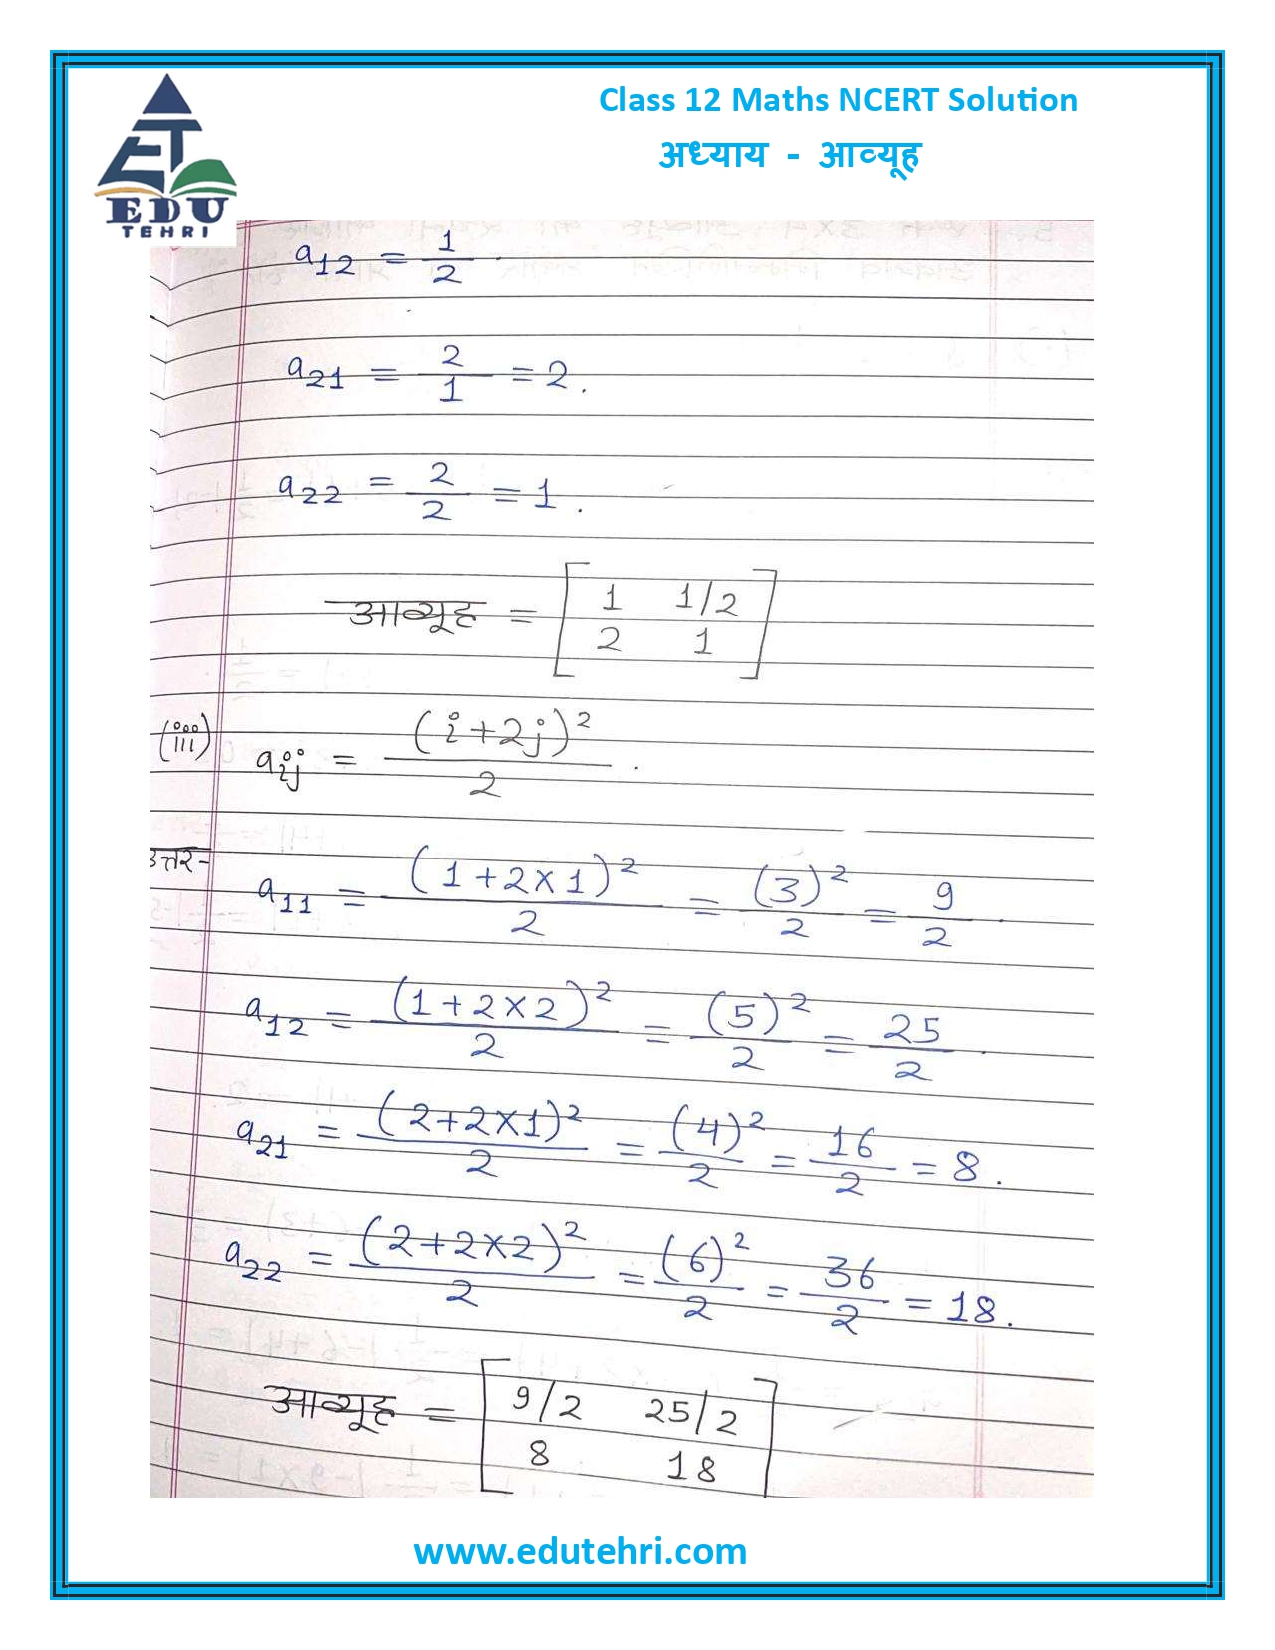 Class 12 Maths NCERT Solution
अध्याय - आव्यूह
EDU
TEHRI
a12 = 1/2.
a21 = 2/1 = 2.
a22 = 2/2 = 1.
आव्यूह = [1 1/2
2 1]
(iii) aij = (i+2j)²/2.
उत्तर- a11 = (1+2×1)²/2 = (3)²/2 = 9/2.
a12 = (1+2×2)²/2 = (5)²/2 = 25/2.
a21 = (2+2×1)²/2 = (4)²/2 = 16/2 = 8.
a22 = (2+2×2)²/2 = (6)²/2 = 36/2 = 18.
आव्यूह = [9/2 25/2
8 18]
www.edutehri.com